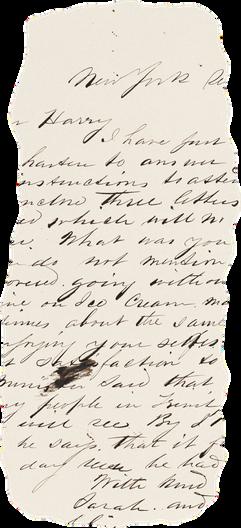 New York Dec
r Harry
I have just
hasten to answer
instructions to atten
enclose three letters
ed which will in
er. What was you
nds not mention
ored going without
me on Ice Cream. ma
times about the same
njoying your selves
satisfaction to
said that
y people in French
will see By
he says that it
day he had
With kind
Sarah and